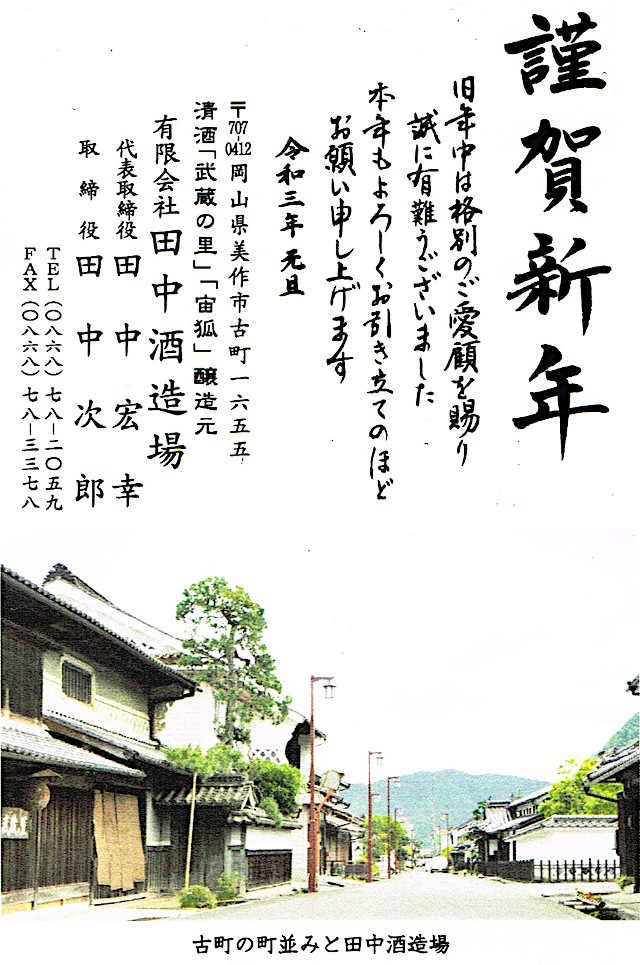 謹賀新年
旧年中は格別のご愛顧を賜り
誠に有難うございました
本年もよろしくお引き立てのほど
お願い申し上げます
令和三年 元旦
〒707-0412 岡山県美作市古町一六五五
清酒「武蔵の里」「宙狐」醸造元
有限会社 田中酒造場
代表取締役 田中宏幸
取締役 田中次郎
TEL(〇八六八)七八-二〇五九
FAX(〇八六八)七八-三三七八
古町の町並みと田中酒造場